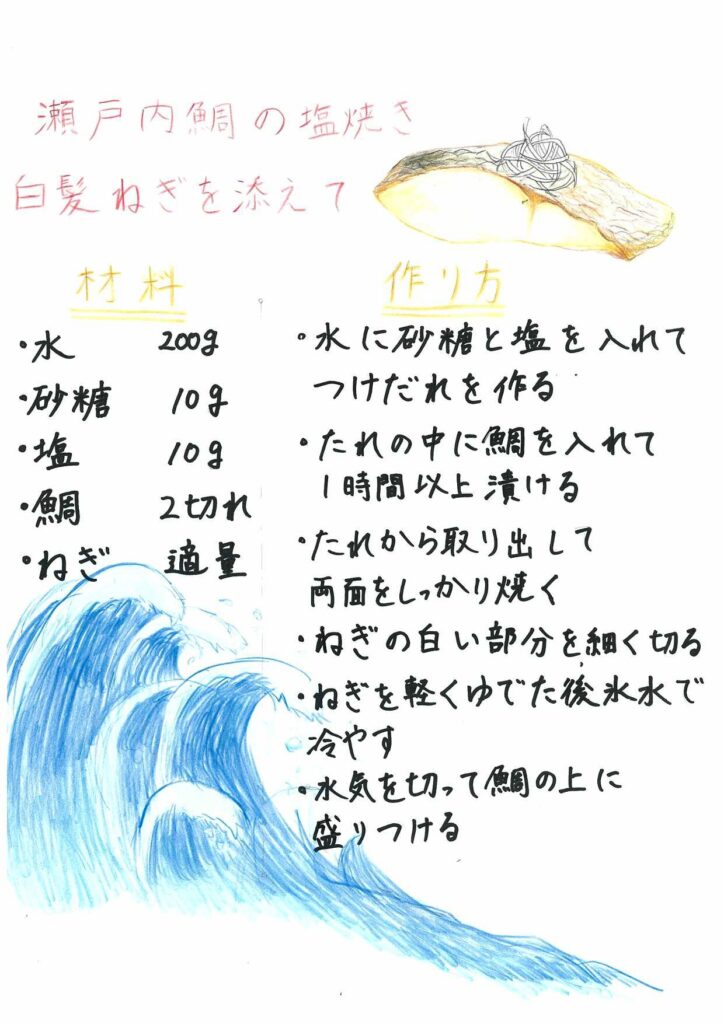 瀬戸内鯛の塩焼き
白髪ねぎを添えて
材料
・水 200g
・砂糖 10g
・塩 10g
・鯛 2切れ
・ねぎ 適量
作り方
・水に砂糖と塩を入れて
つけだれを作る
・たれの中に鯛を入れて
1時間以上漬ける
・たれから取り出して
両面をしっかり焼く
・ねぎの白い部分を細く切る
・ねぎを軽くゆでた後氷水で
冷やす
・水気を切って鯛の上に
盛りつける